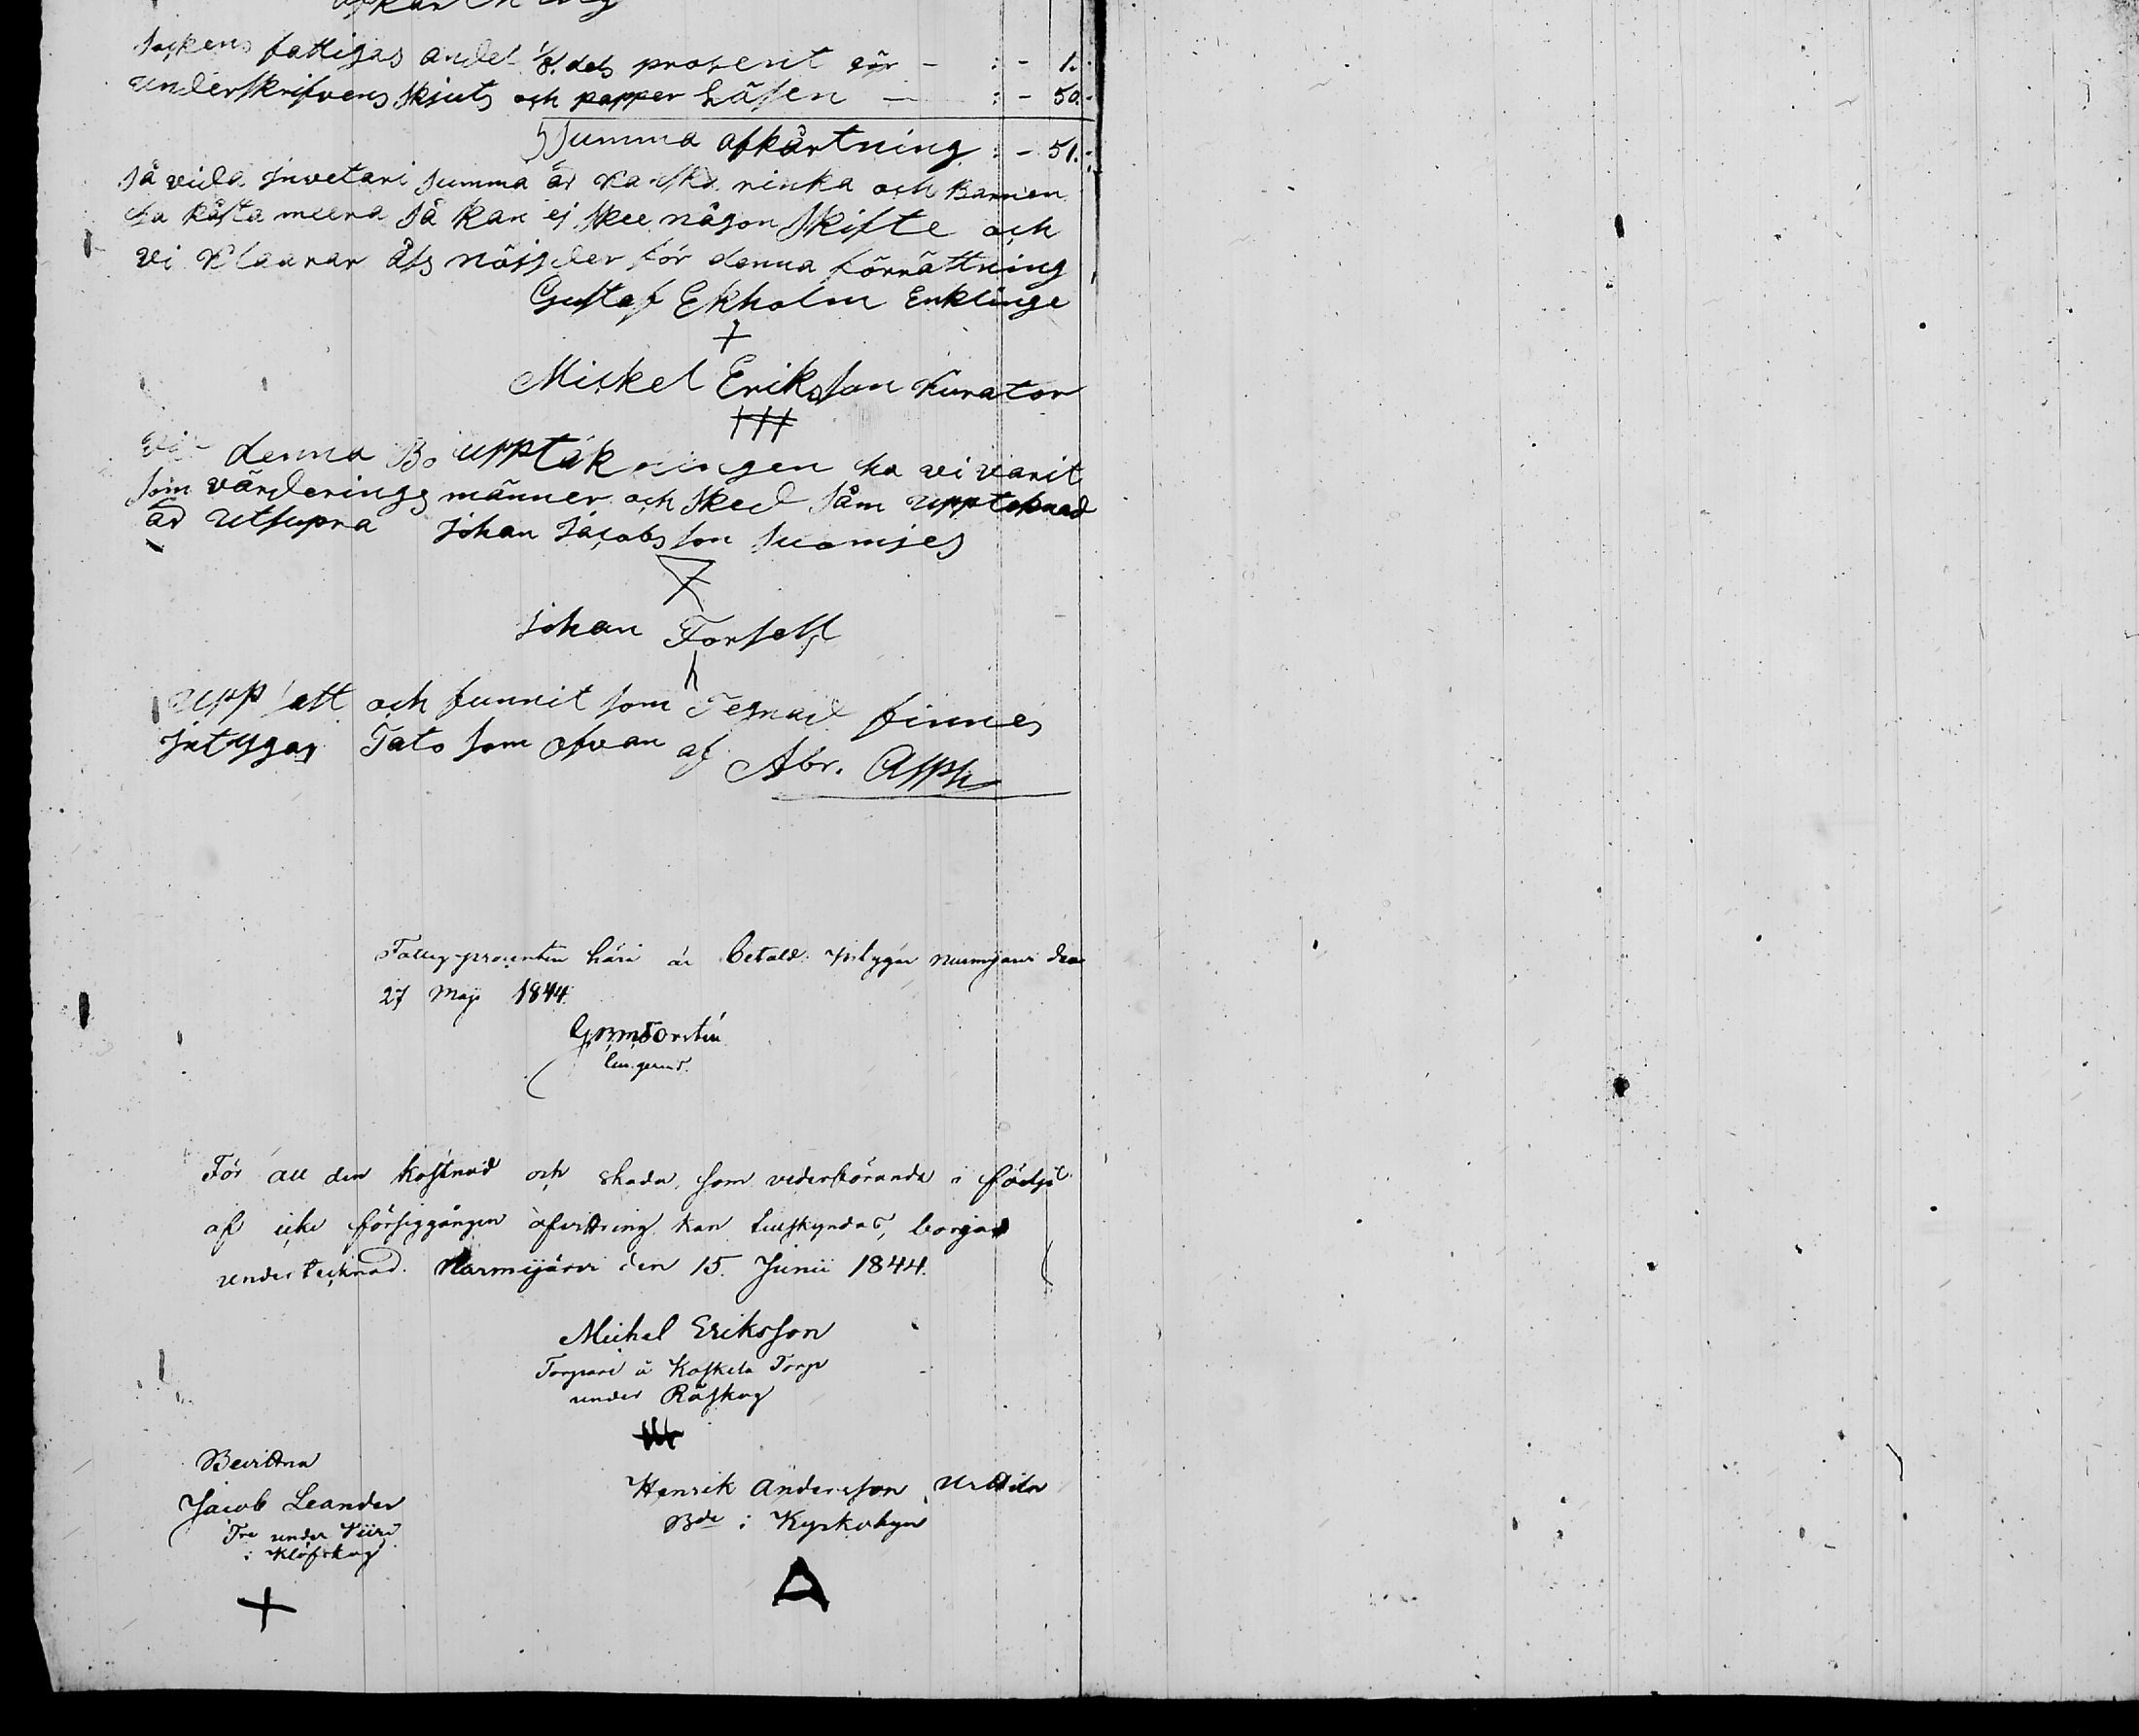 Sockens fattigas andel 1/8. dels prosent gör - : - 1.
underskrifvens skjuts och papper lösen - : - 50.
Summa afkårtning : - 51.
så vida invetari summa är ganska rinka och Barnen
ha kåsta meera så kan ej skee någon skifte och
vi klaarar åss nöijder för denna förrättning
Gustaf Ekholm Enklinge
+
Mickel Eriksson Kurator
Vid denna Bo upptäkningen ha vi varit
som värderings männer och sked såm uppteknad
är utsupra Johan Jacobsson Suomies
Johan Forsell
uppsatt och funnit som Tegnad finnes
intygar Dato som ofvan af Abr. Asph
Fattig procenten häri är betald intygar Nurmijärvi den
27 Maji 1844.
För all den kostnad och skada, som vederbörande i födljd
af icke försiggången afvittring kan tillskyndas, borgar
undertecknad. Nurmijärvi den 15. Junii 1844.
Michel Eriksson
Torpare å Koskela Torp
under Råskog
Bevittna
Jacob Leander
under
i Klöfskog
+
Henrik Andersson Uotila
Bde i Kyrkobyn